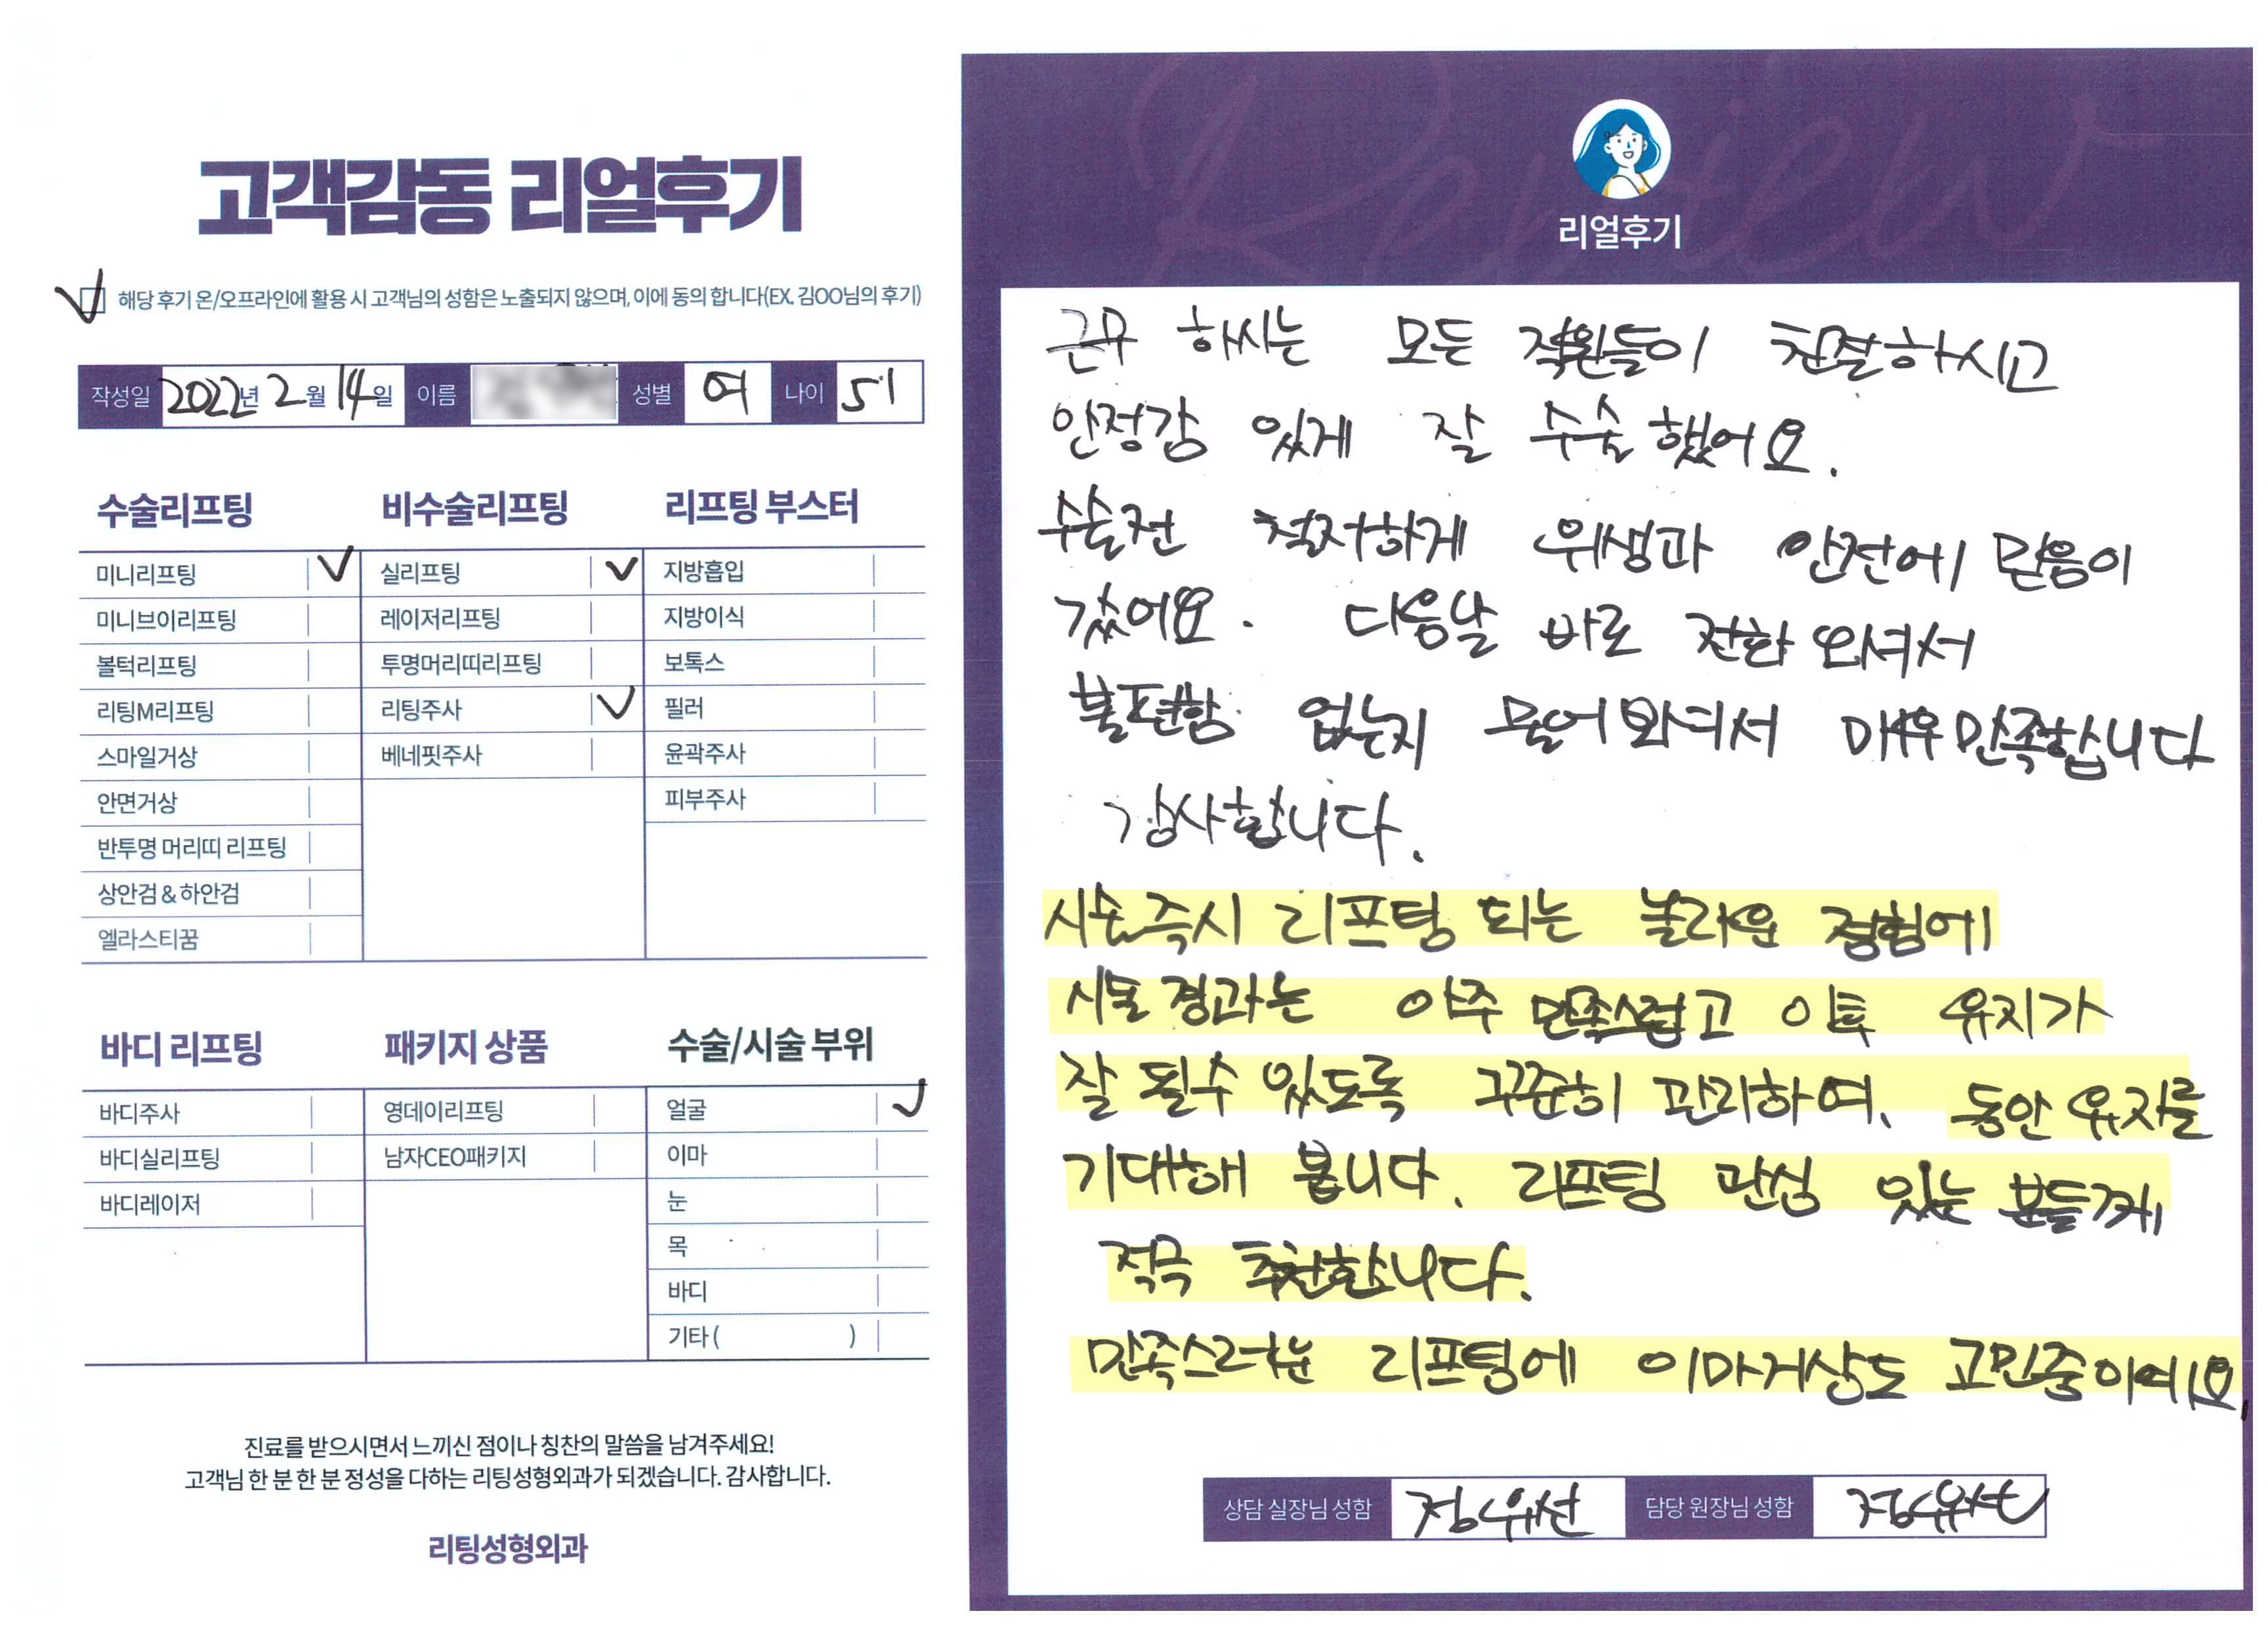 고객감동 리얼후기
해당 후기 온/오프라인에 활용 시 고객님의 성함은 노출되지 않으며, 이에 동의 합니다(EX. 김OO님의 후기)
작성일 2022년 2월 14일 이름 성별 여 나이 51
수술리프팅
미니리프팅
미니브이리프팅
볼턱리프팅
리팅M리프팅
스마일거상
안면거상
반투명 머리띠 리프팅
상안검 & 하안검
엘라스티꿈
비수술리프팅
실리프팅
레이저리프팅
투명머리띠리프팅
리팅주사
베네핏주사
리프팅 부스터
지방흡입
지방이식
보톡스
필러
윤곽주사
피부주사
바디 리프팅
바디주사
바디실리프팅
바디레이저
패키지 상품
영데이리프팅
남자CEO패키지
수술/시술 부위
얼굴
이마
눈
목
바디
기타 ( )
진료를 받으시면서 느끼신 점이나 칭찬의 말씀을 남겨주세요!
고객님 한 분 한 분 정성을 다하는 리팅성형외과가 되겠습니다. 감사합니다.
리팅성형외과
Review
리얼후기
근무 하시는 모든 직원들이 친절하시고
안정감 있게 잘 수술 했어요.
수술전 철저하게 위생과 안전에 믿음이
갔어요. 다음날 바로 전화 오셔서
불편함 없는지 물어봐셔서 매우 만족합니다
감사합니다.
시술즉시 리프팅 되는 놀라운 경험에
시술 결과는 아주 만족스럽고 이후 유지가
잘 될수 있도록 꾸준히 관리하여. 동안 유지를
기대해 봅니다. 리프팅 관심 있는 분들께
적극 추천합니다.
만족스러운 리프팅에 이마거상도 고민중이예요.
상담 실장님 성함 정유선 담당 원장님 성함